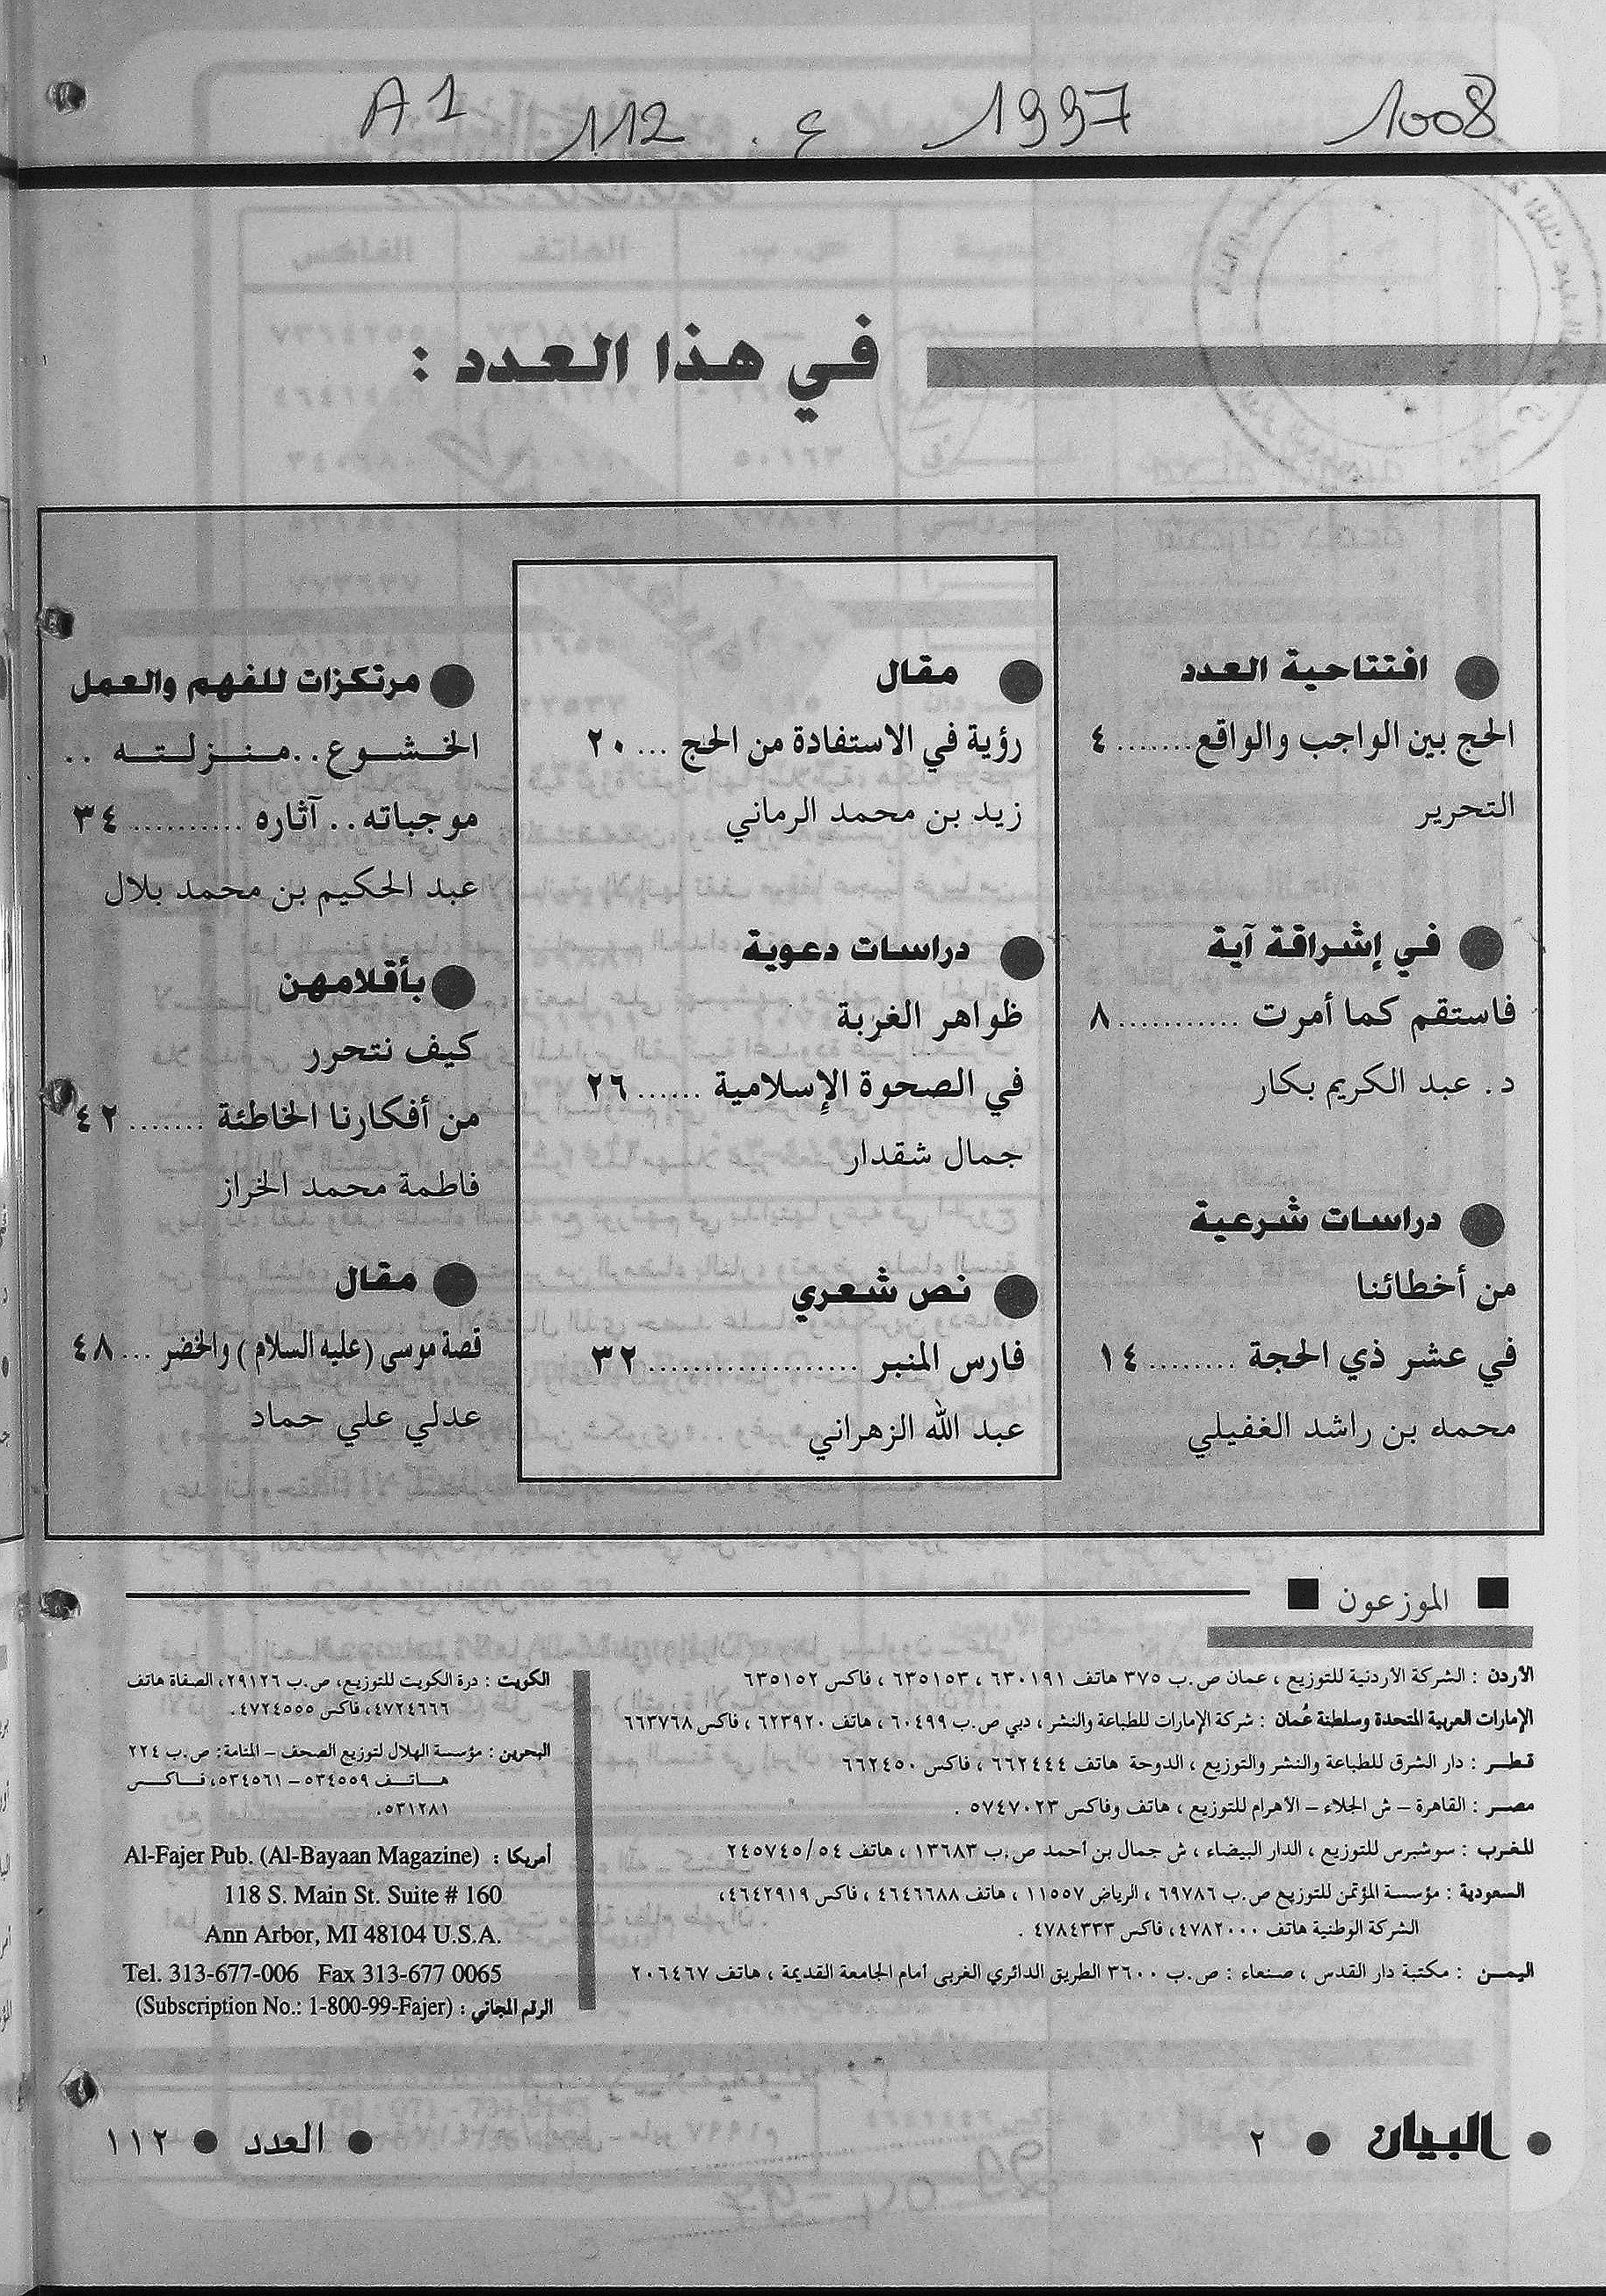 A1 112 ع. 1997 1008
في هذا العدد :
افتتاحية العدد
الحج بين الواجب والواقع ....... ٤
التحرير
في إشراقة آية
فاستقم كما أمرت ........... ٨
د. عبد الكريم بكار
دراسات شرعية
من أخطائنا
في عشر ذي الحجة ........ ١٤
محمد بن راشد الغفيلي
مقال
رؤية في الاستفادة من الحج ... ٢٠
زيد بن محمد الرماني
دراسات دعوية
ظواهر الغربة
في الصحوة الإسلامية ...... ٢٦
جمال شقدار
نص شعري
فارس المنبر ................... ٣٢
عبد الله الزهراني
مرتكزات للفهم والعمل
الخشوع..منزلته ..
موجباته.. آثاره .......... ٣٤
عبد الحكيم بن محمد بلال
بأقلامهن
كيف نتحرر
من أفكارنا الخاطئة ....... ٤٢
فاطمة محمد الخراز
مقال
قصة موسى (عليه السلام) والخضر ... ٤٨
عدلي علي حماد
الموزعون
الأردن : الشركة الأردنية للتوزيع ، عمان ص.ب ٣٧٥ هاتف ٦٣٠١٩١ ، ٦٣٥١٥٣ ، فاكس ٦٣٥١٥٢
الإمارات العربية المتحدة وسلطنة عُمان : شركة الإمارات للطباعة والنشر ، دبي ص.ب ٦٠٤٩٩ ، هاتف ٦٢٣٩٢٠ ، فاكس ٦٦٣٧٦٨
قطر : دار الشرق للطباعة والنشر والتوزيع ، الدوحة هاتف ٦٦٢٤٤٤ ، فاكس ٦٦٢٤٥٠
مصر : القاهرة – ش الجلاء – الأهرام للتوزيع ، هاتف وفاكس ٥٧٤٧٠٢٣ .
المغرب : سوشبرس للتوزيع ، الدار البيضاء ، ش جمال بن أحمد ص.ب ١٣٦٨٣ ، هاتف ٢٤٥٧٤٥/٥٤
السعودية : مؤسسة المؤتمن للتوزيع ص.ب ٦٩٧٨٦ ، الرياض ١١٥٥٧ ، هاتف ٤٦٤٦٦٨٨ ، فاكس ٤٦٤٢٩١٩،
الشركة الوطنية هاتف ٤٧٨٢٠٠٠، فاكس ٤٧٨٤٣٣٣ .
اليمن : مكتبة دار القدس ، صنعاء : ص.ب ٣٦٠٠ الطريق الدائري الغربى أمام الجامعة القديمة ، هاتف ٢٠٦٤٦٧
الكويت : درة الكويت للتوزيع، ص.ب ٢٩١٢٦، الصفاة هاتف
٤٧٢٤٦٦٦، فاكس ٤٧٢٤٥٥٥ .
البحرين : مؤسسة الهلال لتوزيع الصحف – المنامة: ص.ب ٢٢٤
هاتف ٥٣٤٥٥٩ – ٥٣٤٥٦١، فاكس
٥٣١٢٨١.
أمريكا : Al-Fajer Pub. (Al-Bayaan Magazine)
118 S. Main St. Suite # 160
Ann Arbor, MI 48104 U.S.A.
Tel. 313-677-006 Fax 313-677 0065
الرقم المجاني : (Subscription No.: 1-800-99-Fajer)
البيان ● ٢
العدد ● ١١٢